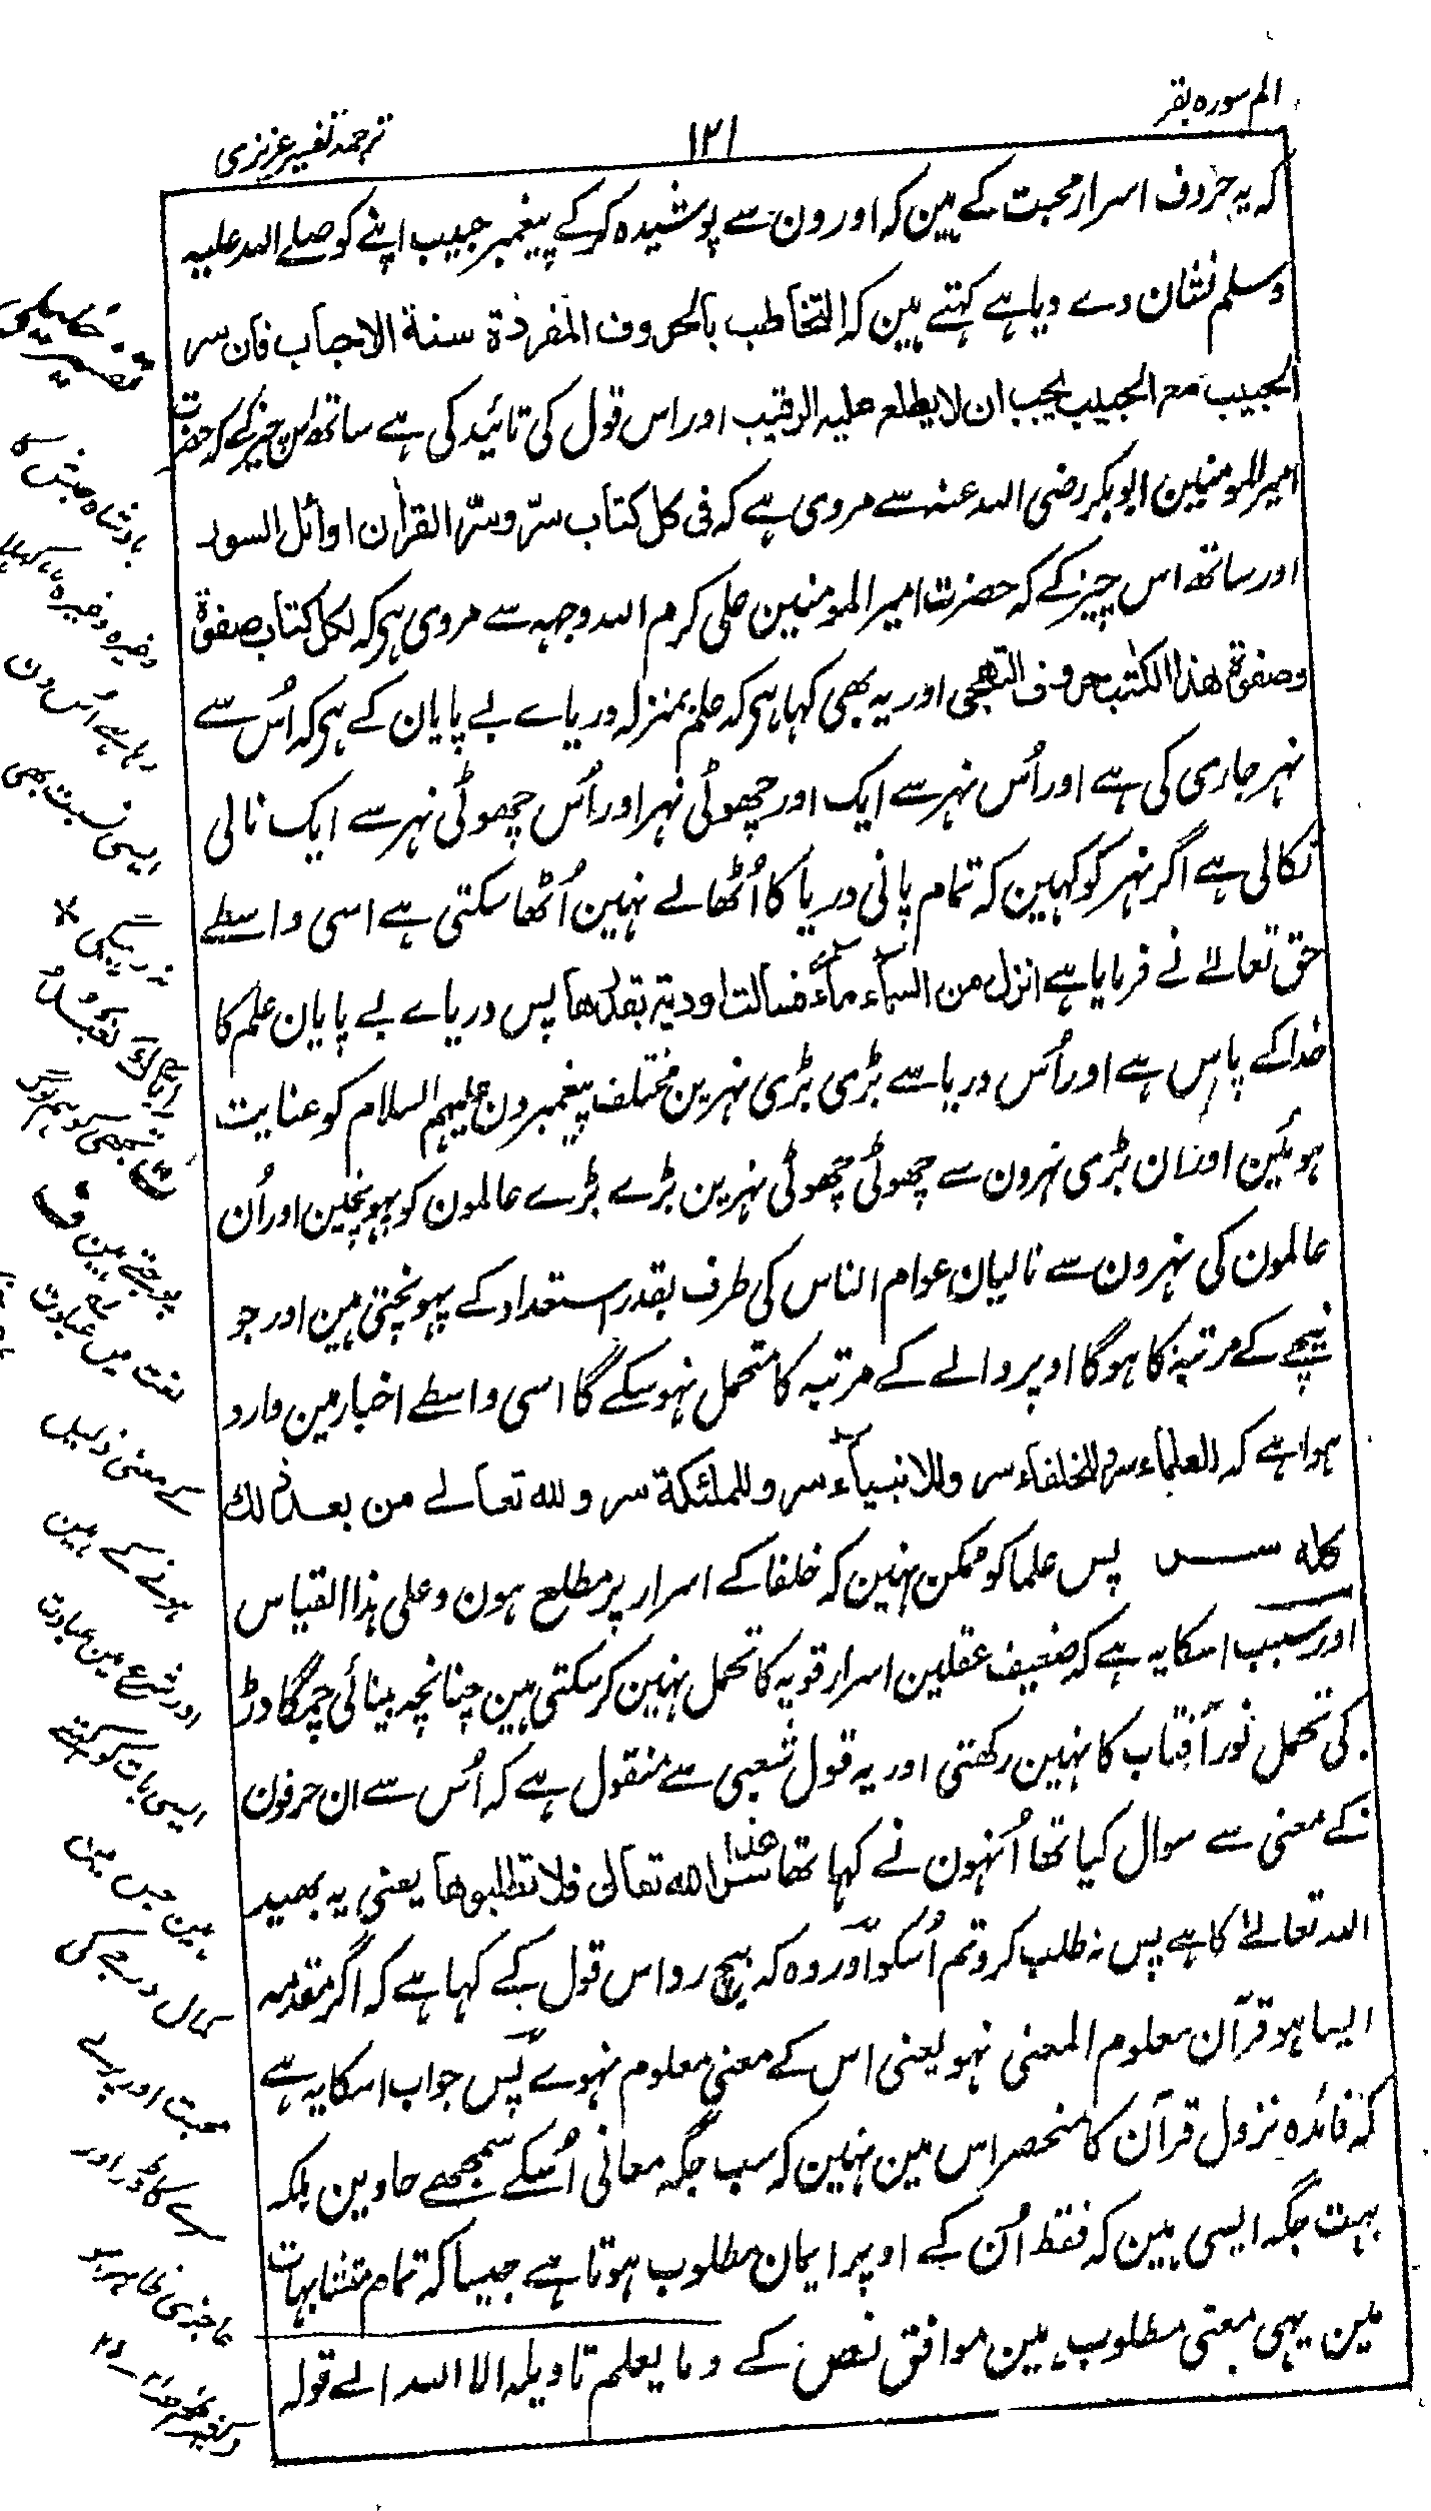 الم سورہ بقر
۱۲۱
ترجمہ تفسیر عزیزی
کہ یہ حروف اسرار محبت کے ہین کہ اورون سے پوشیدہ کرکے پیغمبر حبیب اپنے کو صلے اللہ علیہ
وسلم نشان دے دیا ہے کہتے ہین کہ التخاطب بالحروف المفردة سنة الاحباب فان سر
الحبیب مع الحبیب یجب ان لا یطلع علیہ الرقیب اور اس قول کی تائید کی ہے ساتھ اس چیز کے کہ حضرت
امیر المومنین ابوبکر رضی اللہ عنہ سے مروی ہے کہ فی کل کتاب سرّ وسرّ القراٰن اوائل السور
اور ساتھ اس چیز کے کہ حضرت امیر المومنین علی کرم اللہ وجہہ سے مروی ہی کہ لکل کتاب صفوة
وصفوة هذا الکتٰب حروف التهجی اور یہ بھی کہا ہی کہ علم بمنزلہ دریاے بے پایان کے ہی کہ اُس سے
نہر جاری کی ہے اور اُس نہر سے ایک اور چھوٹی نہر اور اُس چھوٹی نہر سے ایک نالی
نکالی ہے اگر نہر کو کہین کہ تمام پانی دریا کا اُٹھالے نہین اُٹھا سکتی ہے اسی واسطے
حق تعالے نے فرمایا ہے انزل من السمآء مآءً فسالت اودیة بقدرها پس دریاے بے پایان علم کا
خدا کے پاس ہے اور اُس دریا سے بڑی بڑی نہرین مختلف پیغمبرون علیہم السلام کو عنایت
ہوئین اور ان بڑی نہرون سے چھوٹی چھوٹی نہرین بڑے بڑے عالمون کو پہونچین اور اُن
عالمون کی نہرون سے نالیان عوام الناس کی طرف بقدر استعداد کے پہونچتی ہین اور جو
نیچے کے مرتبہ کا ہوگا اوپر والے کے مرتبہ کا متحمل نہو سکے گا اسی واسطے اخبار مین وارد
ہوا ہے کہ للعلماء سر وللخلفاء سر وللانبیآء سر وللملئکة سر ولله تعالے من بعد ذلك
کله سر پس علما کو ممکن نہین کہ خلفا کے اسرار پر مطلع ہون وعلی ہذا القیاس
اور سبب اسکا یہ ہے کہ ضعیف عقلین اسرار قویہ کا تحمل نہین کرسکتی ہین چنانچہ بینائی چمگادڑ
کی تحمل نور آفتاب کا نہین رکھتی اور یہ قول شعبی سے منقول ہے کہ اُس سے ان حرفون
کے معنی سے سوال کیا تھا اُنہون نے کہا تھا هذا سر الله تعالی فلا تطلبوها یعنی یہ بھید
اللہ تعالےٰ کا ہے پس نہ طلب کرو تم اُسکو اور وہ کہ بیچ رد اس قول کے کہا ہے کہ اگر مقدمہ
ایسا ہو قرآن معلوم المعنی نہو یعنی اس کے معنی معلوم نہوے پس جواب اسکا یہ ہے
کہ فائدہ نزول قرآن کا منحصر اس مین نہین کہ سب جگہ معانی اُسکے سمجھے جاوین بلکہ
بہت جگہ ایسی ہین کہ فقط اُن کے اوپر ایمان مطلوب ہوتا ہے جیسا کہ تمام متشابہات
مین یہی معنی مطلوب ہین موافق نص کے وما یعلم تاویلہ الا اللہ الے قولہ